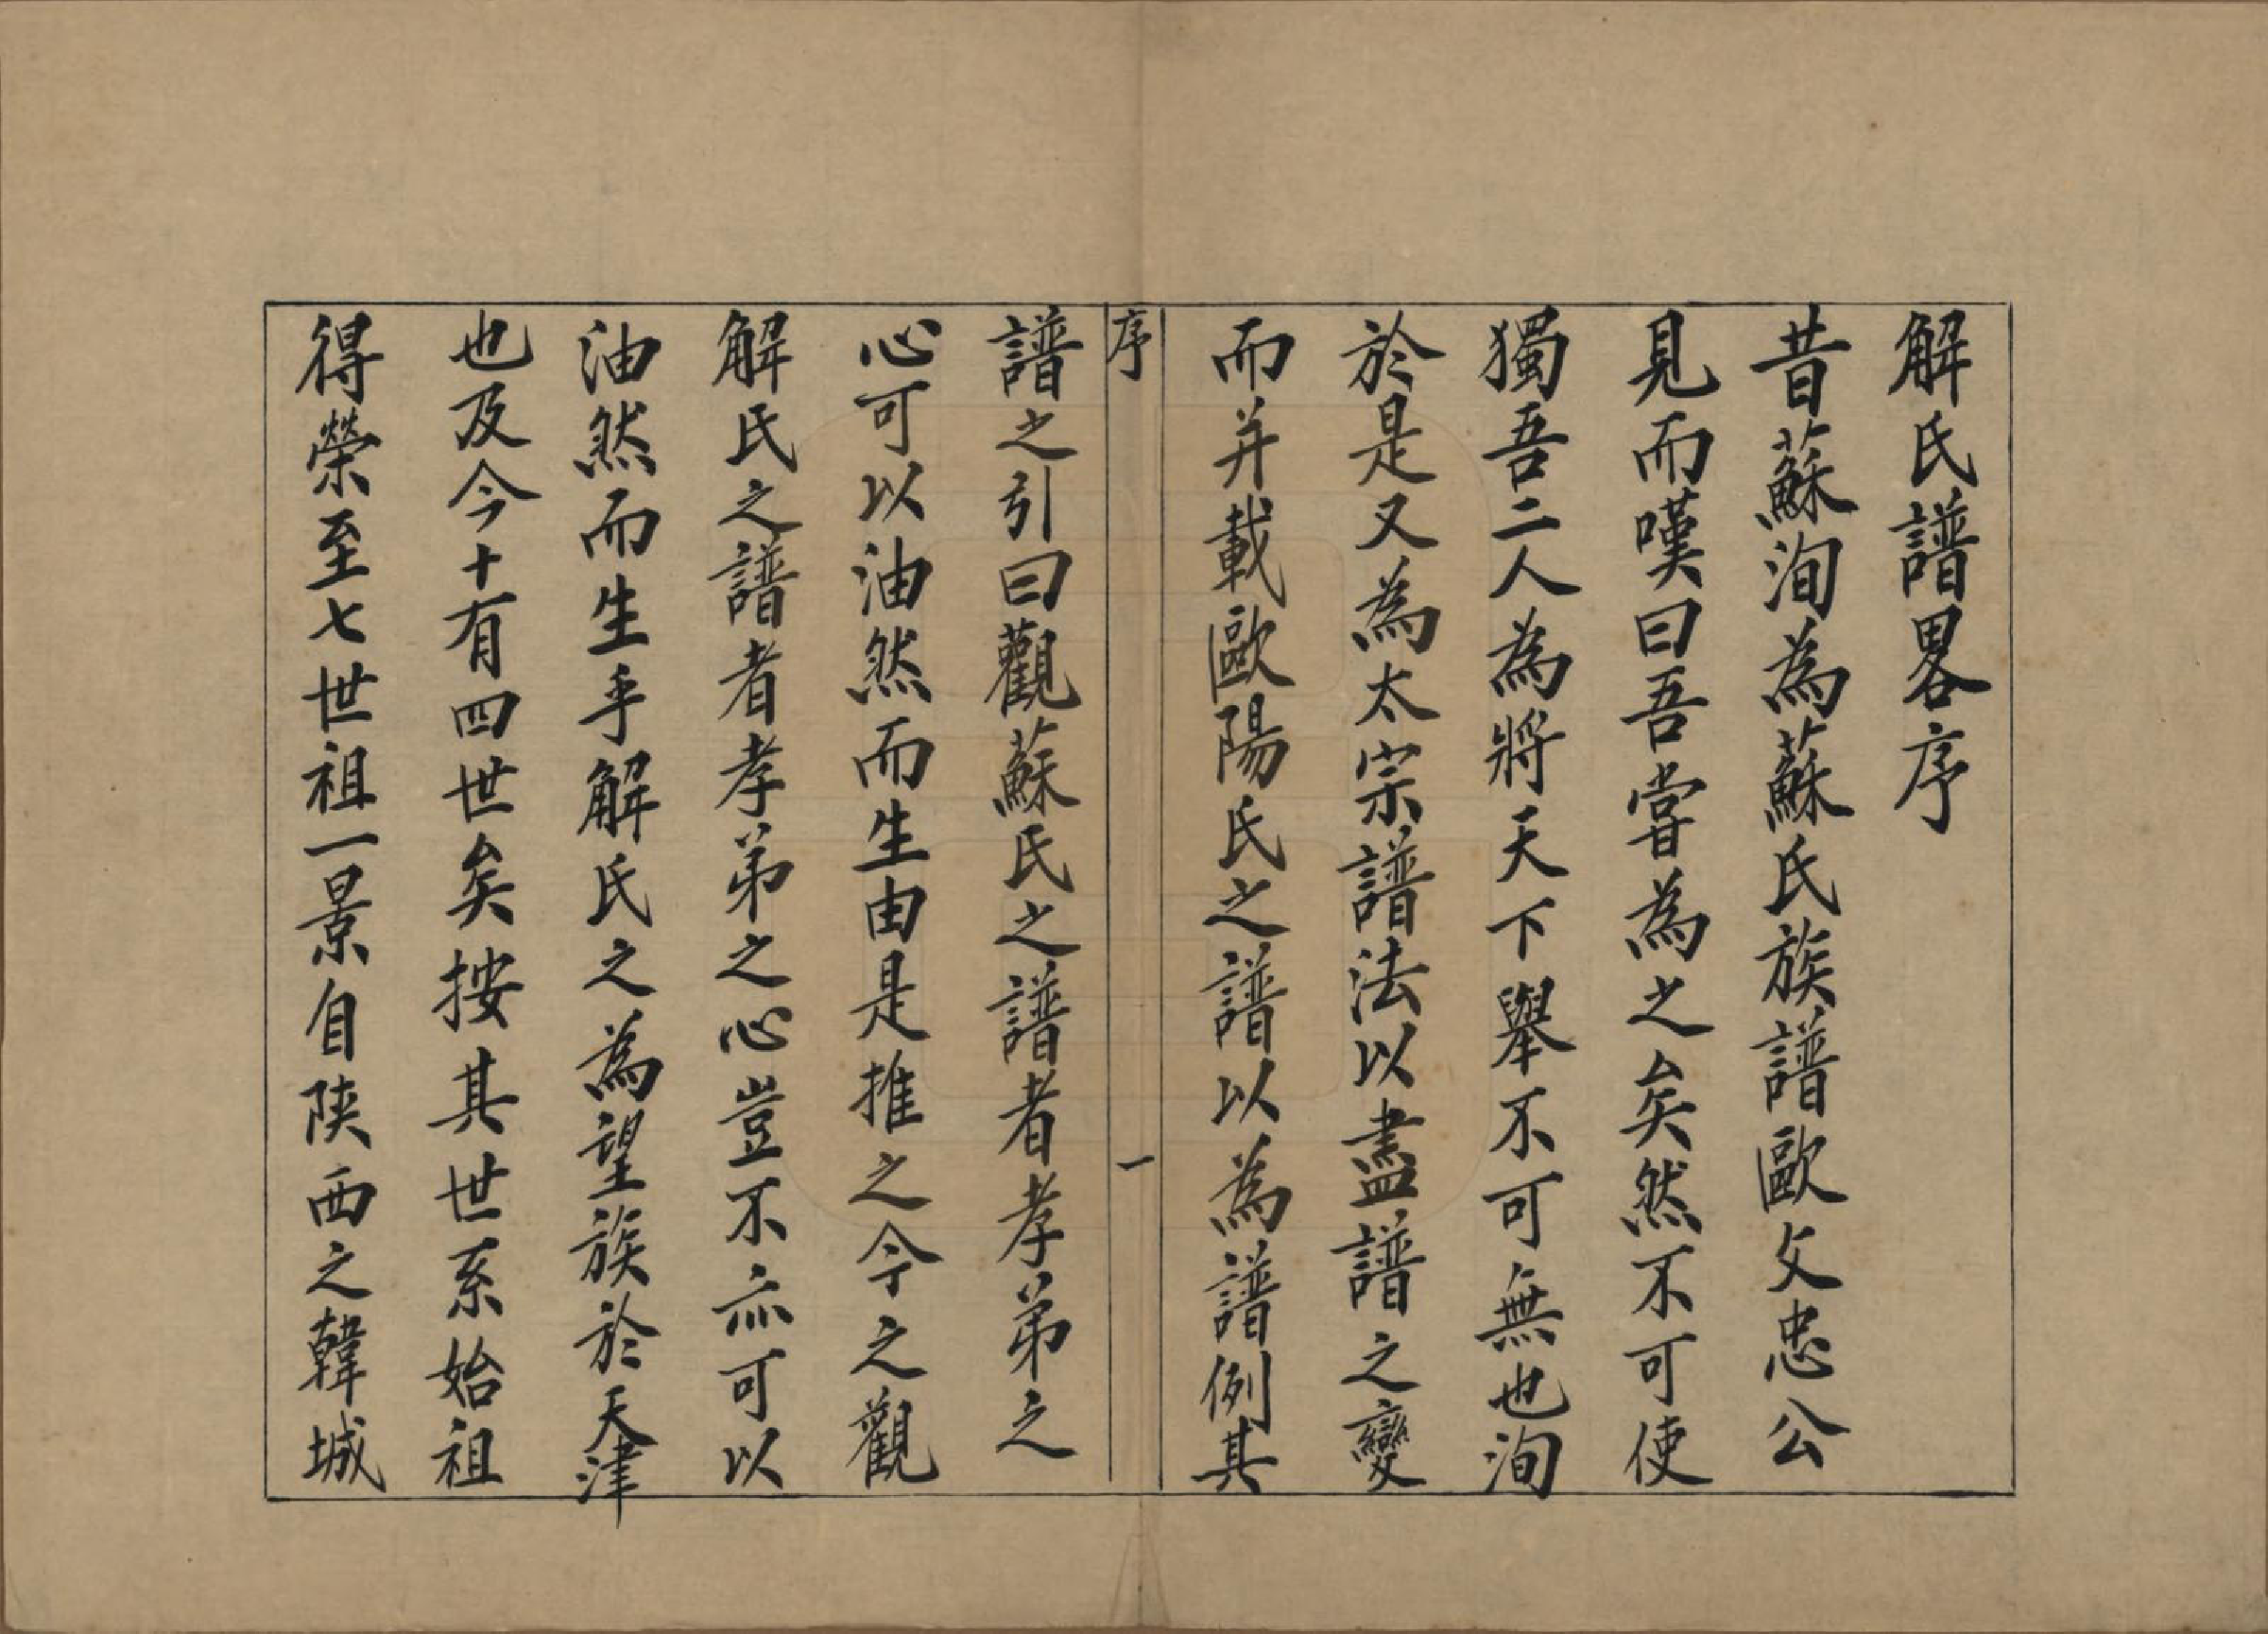 解氏譜畧序
昔蘇洵為蘇氏族譜歐文忠公
見而嘆曰吾嘗為之矣然不可使
獨吾二人為將天下舉不可無也洵
於是又為太宗譜法以盡譜之變
而并載歐陽氏之譜以為譜例其
序 一
譜之引曰觀蘇氏之譜者孝弟之
心可以油然而生由是推之今之觀
解氏之譜者孝弟之心豈不亦可以
油然而生乎解氏之為望族於天津
也及今十有四世矣按其世系始祖
得榮至七世祖一景自陝西之韓城